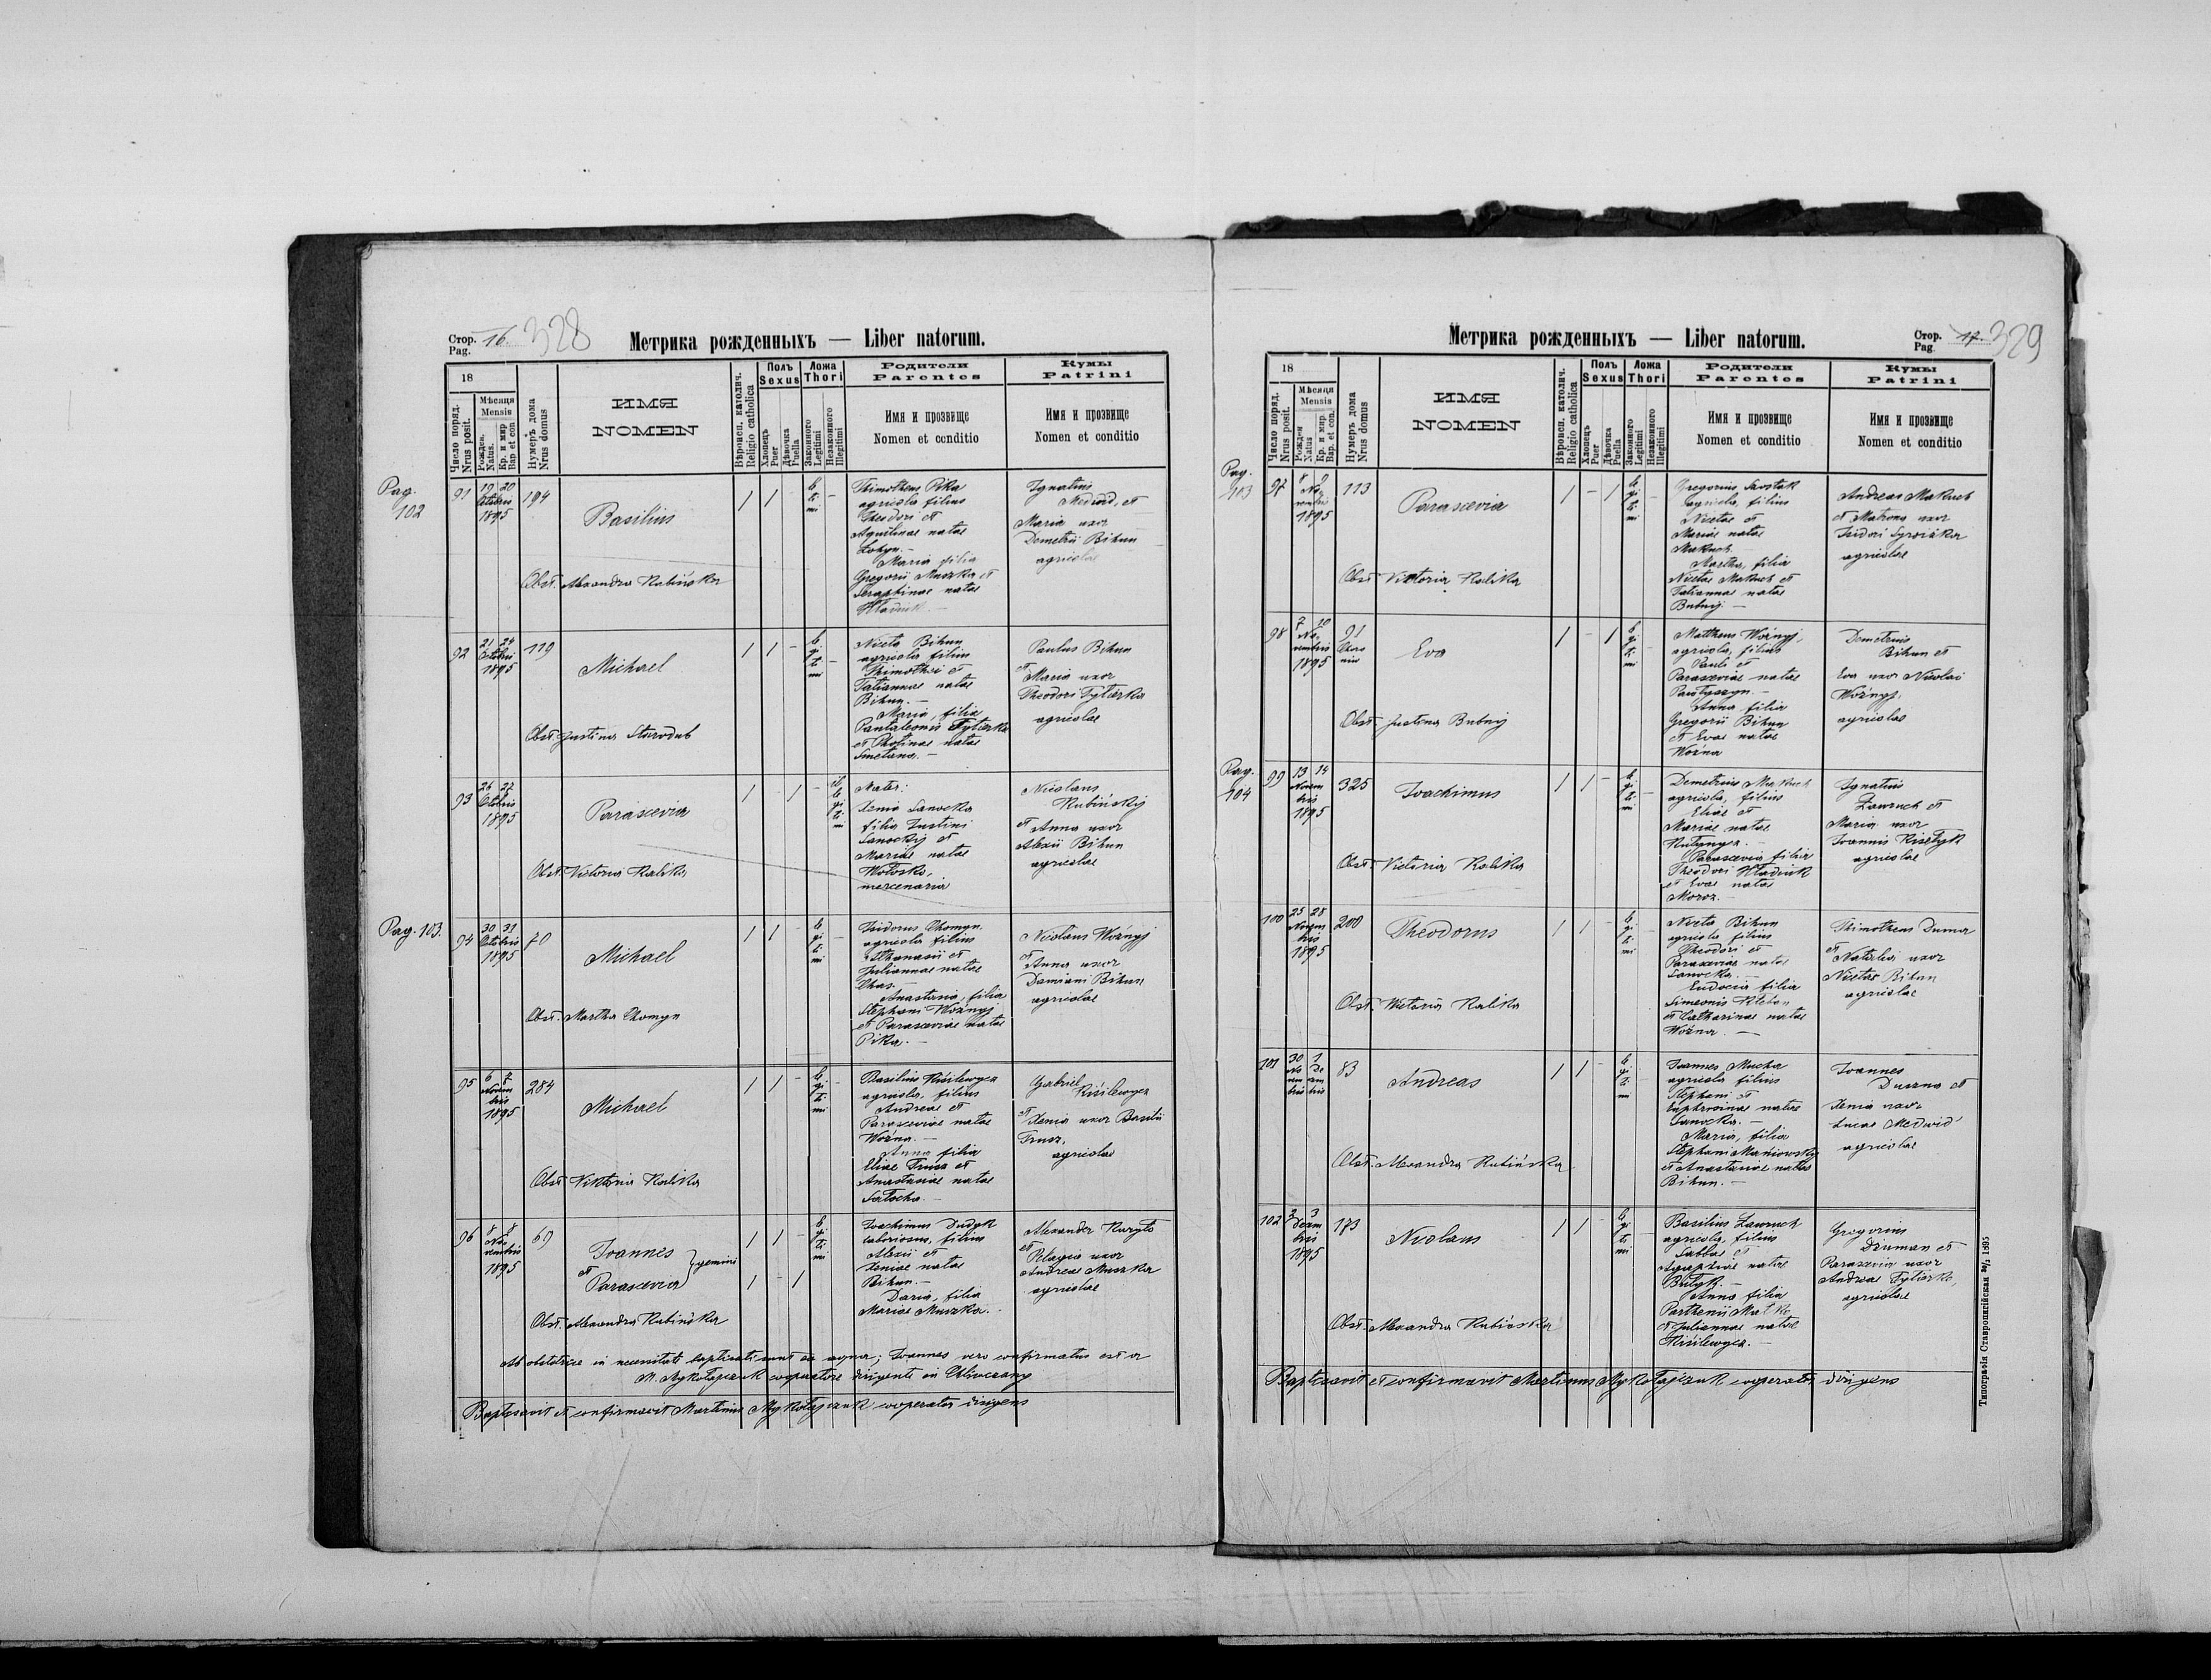 Стор. 16. 328
Pag.
Метрика рожденныхъ — Liber natorum.
18
Число поряд. Nrus posit.
Мѣсяця Mensis
Рожден. Natus.
Кр. и мир Bap et con.
Нумеръ дома Nrus domus
ИМЯ
NOMEN
Вѣроисп. католич. Religio catholica
Полъ Sexus
Хлопець Puer
Дѣвочка Puella
Ложа Thori
Законного Legitimi
Незаконного Illegitimi
Родители
Parentes
Имя и прозвище
Nomen et conditio
Кумы
Patrini
Имя и прозвище
Nomen et conditio
Pag. 102
91
19 20
Octobris
1895
194
Basilius
1 1 -
Obst. Alexandra Rubińska
Thimotheus Pika
agricola filius
Theodori et
Aquilinae natae
Maria filia
Gregorii Muszka et
Seraphinae natae
Ignatius
Medwid, et
Maria uxor
Demetrii Bihun
agricolae
92
21 24
Octobris
1895
119
Michael
1 1 -
le gi ti mi
Obst. Justina Starodub
Niceta Bihun
agricola filius
Thimothei et
Tatiannae natae
Bihun. —
Maria, filia
Pantaleonis Tytiarka
et Photinae natae
Smetana. —
Paulus Bihun
et
Maria uxor
Theodori Tytiarka
agricolae
93
26 27
Octobris
1895
Parascevia
1 - 1
il le gi ti mi
Obst. Victoria Kalika
Mater:
Xenia Sanocka
filia Justini
Sanockij et
Mariae natae
Wołosko,
mercenaria
Nicolaus
Rubińskij
et Anna uxor
Alexii Bihun
agricolae
Pag. 103.
94
30 31
Octobris
1895
70
Michael
1 1 -
le gi ti mi
Obst. Martha Chomyn
Isidorus Chomyn
agricola filius
Athanasii et
Juliannae natae
Chas. —
Anastasia, filia
Stephani Woźnyj
et Parasceviae natae
Pika. —
Nicolaus Woźnyj
et
Anna uxor
Damiani Bihun
agricolae
95
6 7
Novem
bris
1895
284
Michael
1 1 -
le gi ti mi
Obst. Viktoria Kalika
Basilius Kisilewycz
agricola, filius
Andreae et
Parasceviae natae
Woźna. —
Anna filia
Eliae Trusz et
Anastasiae natae
Gabriel
Kisilewycz
et Xenia uxor Basilii
Trusz,
agricolae
96
8 8
No-
vembris
1895
69
Joannes
et
Parascevia
} gemini
1 1 -
1 - 1
le gi ti mi
Obst. Alexandra Rubińska
Joachimus Dudyk
laboriosus, filius
Alexii et
Xeniae natae
Bihun. —
Daria, filia
Mariae Muszka. —
Alexander Kuryło
et
Pelagia uxor
Andreae Muszka
agricolae
Ab obstetrice in necessitate baptisati sunt ex aqua; Joannes vero confirmatus est a
M. Mykołajczuk cooperatore dirigente
Baptisavit et confirmavit Martinus Mykołajczuk cooperator dirigens
Метрика рожденныхъ — Liber natorum.
Стор. 17. 329
Pag.
18
Число поряд. Nrus posit.
Мѣсяця Mensis
Рожден Natus
Кр. и мир. Bap. et con.
Нумеръ дома Nrus domus
ИМЯ
NOMEN
Вѣроисп. католич. Religio catholica
Полъ Sexus
Хлопецъ Puer
Дѣвочка Puella
Ложа Thori
Законного Legitimi
Незаконного Illegitimi
Родители
Parentes
Имя и прозвище
Nomen et conditio
Кумы
Patrini
Имя и прозвище
Nomen et conditio
Pag. 103
97
8 9
No-
vembris
1895
113
Parascevia
1 - 1
le gi ti mi
Obst. Viktoria Kalika
Gregorius
agricola, filius
Nicetae et
Mariae natae
Makuch. —
Martha, filia
Nicetae Makuch et
Tatiannae natae
Bubnij. —
Andreas Makuch
et Matrona uxor
Isidori
agricolae
98
7 10
No-
vembris
1895
91
Eva
1 - 1
le gi ti mi
Obst. Justina Bubnij
Mattheus Woźnyj,
agricola, filius
Pauli et
Parasceviae natae
Anna filia
Gregorii Bihun
et Evae natae
Woźna
Demetrius
Bihun et
Eva uxor Nicolai
Woźnyj,
agricolae
Pag. 104
99
13 14
Novem
bris
1895
325
Joachimus
1 1 -
le gi ti mi
Obst. Victoria Kalika
Demetrius Makuch
agricola, filius
Eliae et
Mariae natae
Parascevia filia
Theodori Hładiuk
et Evae natae
Moroz. —
Ignatius
Ławruch et
Maria uxor
Joannis
agricolae
100
25 28
Novem
bris
1895
200
Theodorus
1 1 -
le gi ti mi
Obst. Victoria Kalika
Niceta Bihun
agricola filius
Theodori et
Parasceviae natae
Sanocka. —
Eudocia filia
Simeonis
et Catharinae natae
Woźna. —
Thimotheus Duma
et
Natalia uxor
Nicetae Bihun
agricolae
101
30 1
No De
vem cem
bris bris
83
Andreas
1 1 -
le gi ti mi
Obst. Alexandra Rubińska
Joannes Mucha
agricola filius
Stephani et
Euphrosinae natae
Sanocka. —
Maria, filia
Stephani Maniowskij
et Anastasiae natae
Bihun. —
Joannes
et
Xenia uxor
Lucae Medwid
agricolae
102
3 3
Decem
bris
1895
173
Nicolaus
1 1 -
le gi ti mi
Obst. Alexandra Rubińska
Basilius Ławruch
agricola, filius
Sabbae et
Agaphiae natae
Anna filia
Parthenii
et Juliannae natae
Kisilewycz. —
Gregorius
Dziuman et
Parascevia uxor
Andreae Tytiarka,
agricolae
Baptisavit et confirmavit Martinus Mykołajczuk cooperator dirigens
Типографія Ставропигійская 1895